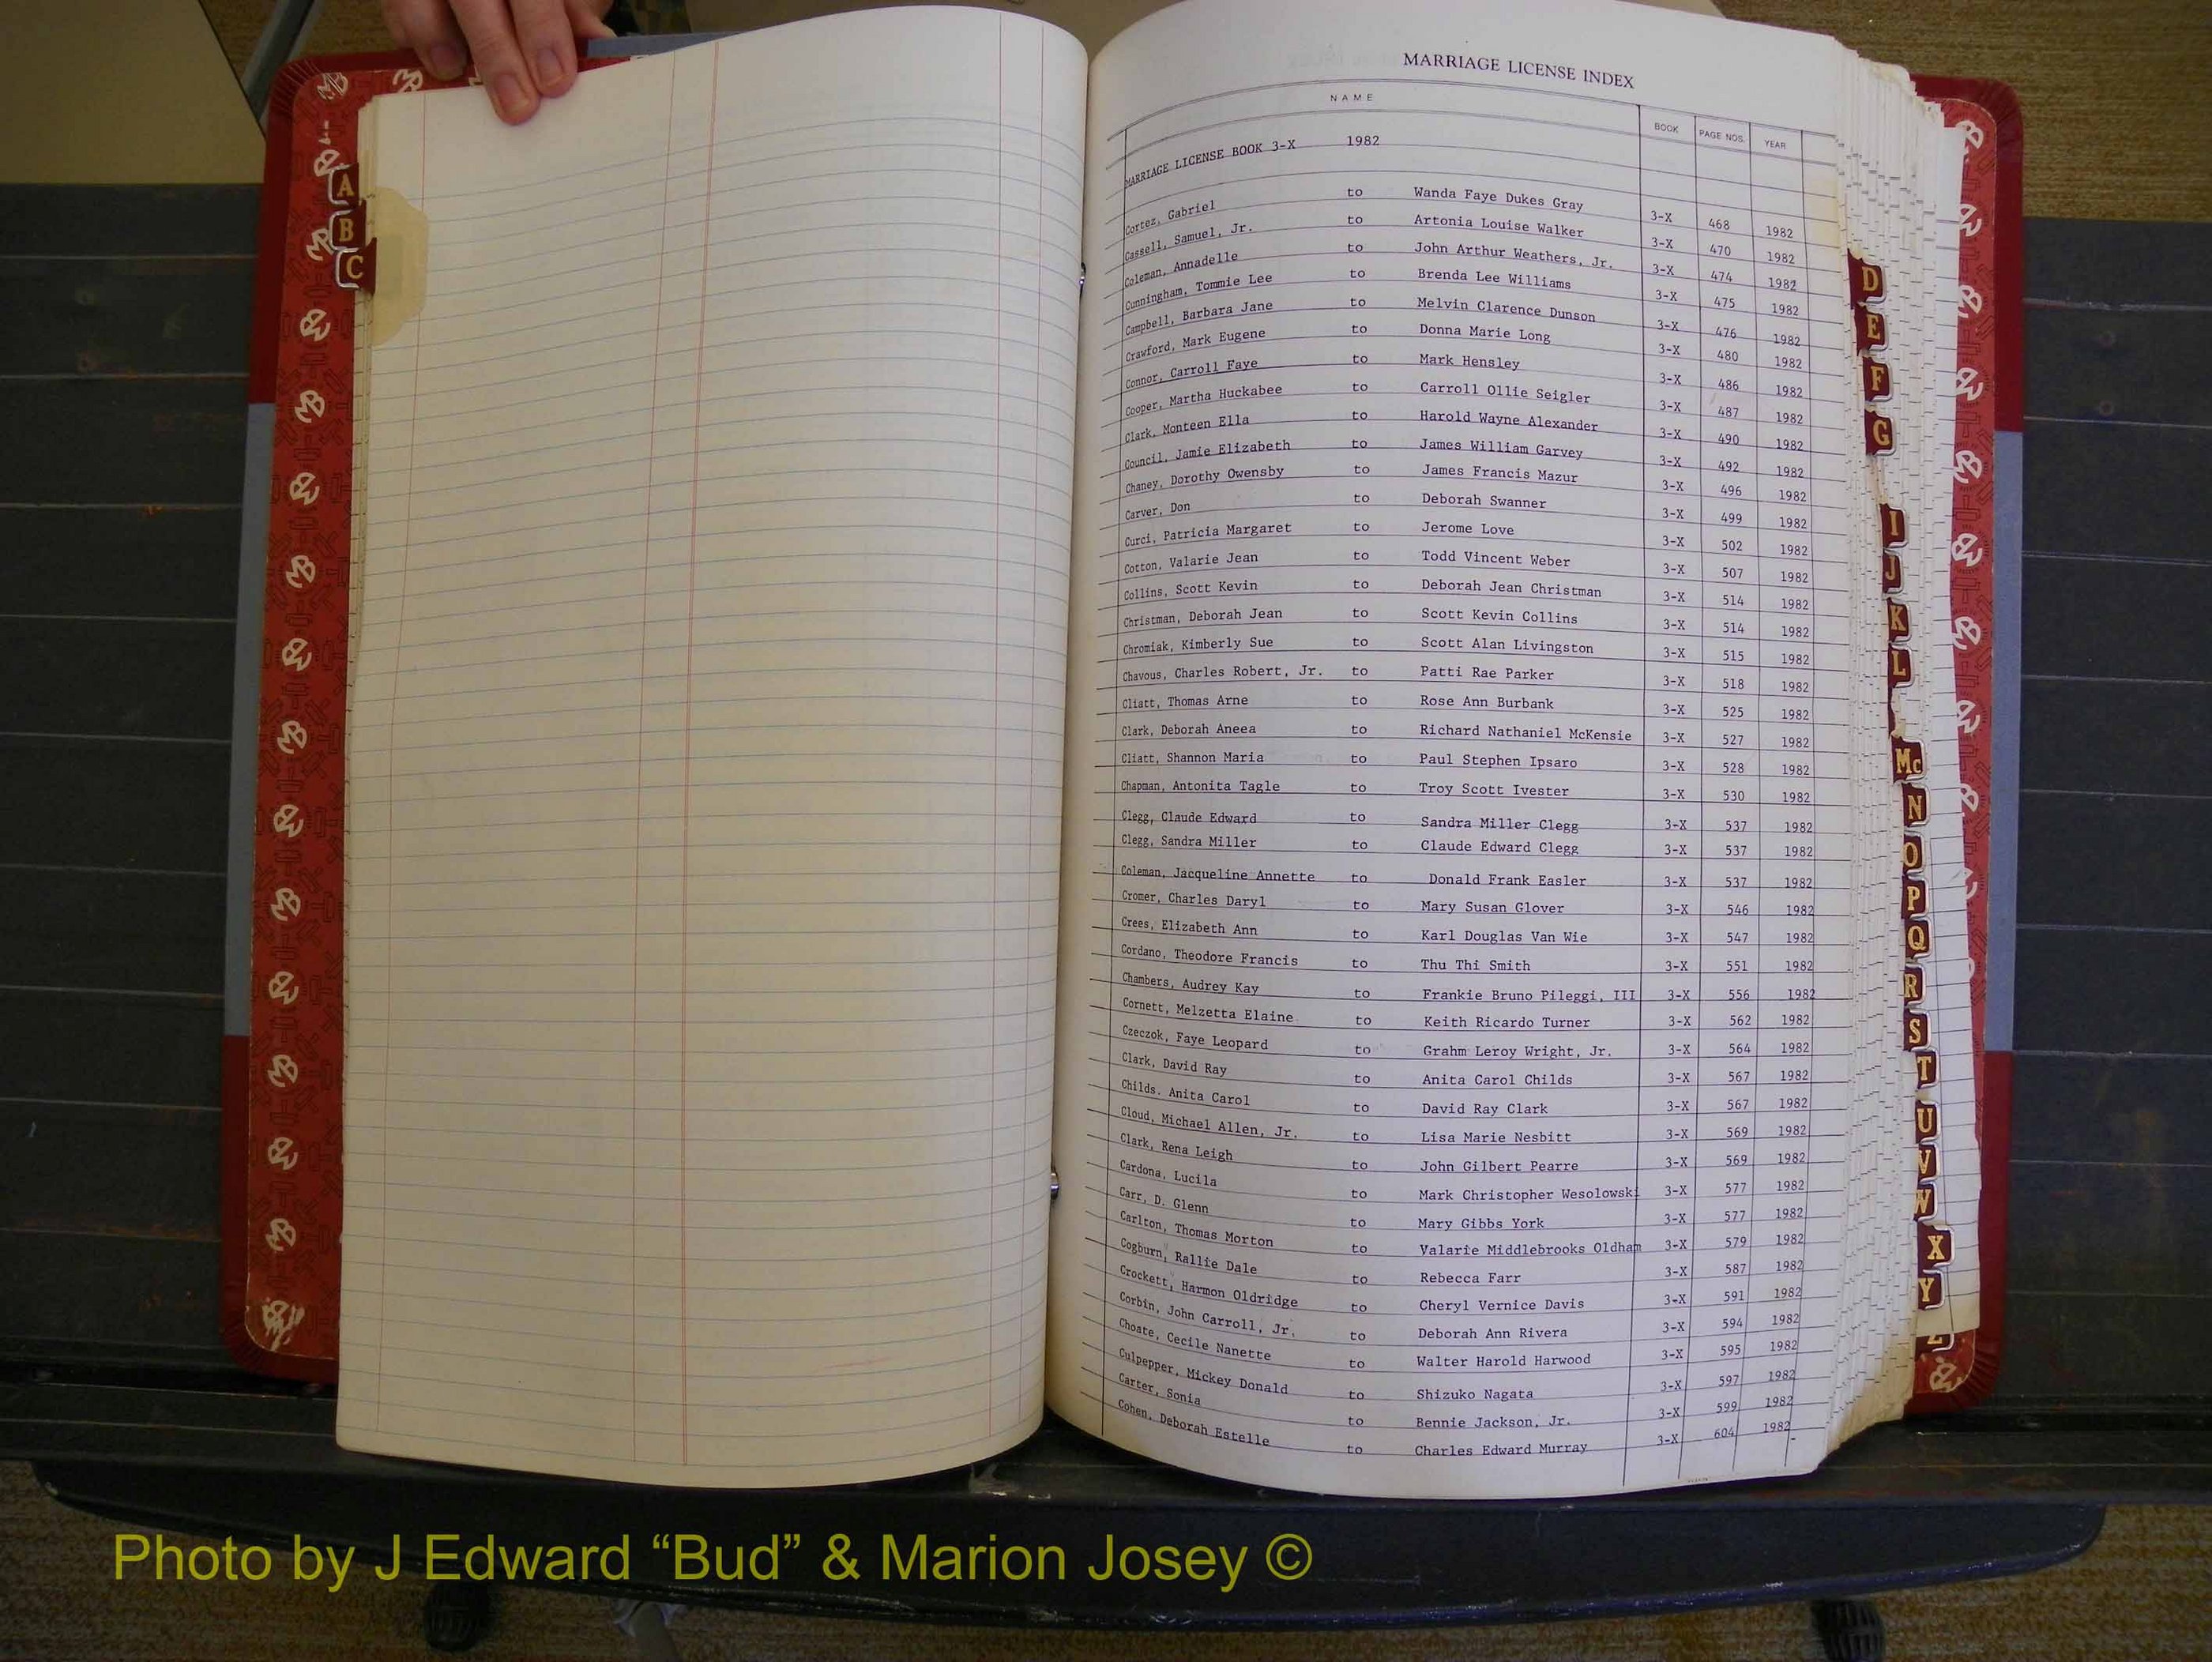 MARRIAGE LICENSE INDEX
NAME BOOK PAGE NOS. YEAR
MARRIAGE LICENSE BOOK 3-X 1982
Cortez, Gabriel to Wanda Faye Dukes Gray 3-X 468 1982
Cassell, Samuel, Jr. to Artonia Louise Walker 3-X 470 1982
Coleman, Annadelle to John Arthur Weathers, Jr. 3-X 474 1982
Cunningham, Tommie Lee to Brenda Lee Williams 3-X 475 1982
Campbell, Barbara Jane to Melvin Clarence Dunson 3-X 476 1982
Crawford, Mark Eugene to Donna Marie Long 3-X 480 1982
Connor, Carroll Faye to Mark Hensley 3-X 486 1982
Cooper, Martha Huckabee to Carroll Ollie Seigler 3-X 487 1982
Clark, Monteen Ella to Harold Wayne Alexander 3-X 490 1982
Council, Jamie Elizabeth to James William Garvey 3-X 492 1982
Chaney, Dorothy Owensby to James Francis Mazur 3-X 496 1982
Carver, Don to Deborah Swanner 3-X 499 1982
Curci, Patricia Margaret to Jerome Love 3-X 502 1982
Cotton, Valarie Jean to Todd Vincent Weber 3-X 507 1982
Collins, Scott Kevin to Deborah Jean Christman 3-X 514 1982
Christman, Deborah Jean to Scott Kevin Collins 3-X 514 1982
Chromiak, Kimberly Sue to Scott Alan Livingston 3-X 515 1982
Chavous, Charles Robert, Jr. to Patti Rae Parker 3-X 518 1982
Cliatt, Thomas Arne to Rose Ann Burbank 3-X 525 1982
Clark, Deborah Aneea to Richard Nathaniel McKensie 3-X 527 1982
Cliatt, Shannon Maria to Paul Stephen Ipsaro 3-X 528 1982
Chapman, Antonita Tagle to Troy Scott Ivester 3-X 530 1982
Clegg, Claude Edward to Sandra Miller Clegg 3-X 537 1982
Clegg, Sandra Miller to Claude Edward Clegg 3-X 537 1982
Coleman, Jacqueline Annette to Donald Frank Easler 3-X 537 1982
Cromer, Charles Daryl to Mary Susan Glover 3-X 546 1982
Crees, Elizabeth Ann to Karl Douglas Van Wie 3-X 547 1982
Cordano, Theodore Francis to Thu Thi Smith 3-X 551 1982
Chambers, Audrey Kay to Frankie Bruno Pileggi, III 3-X 556 1982
Cornett, Melzetta Elaine to Keith Ricardo Turner 3-X 562 1982
Czeczok, Faye Leopard to Grahm Leroy Wright, Jr. 3-X 564 1982
Clark, David Ray to Anita Carol Childs 3-X 567 1982
Childs. Anita Carol to David Ray Clark 3-X 567 1982
Cloud, Michael Allen, Jr. to Lisa Marie Nesbitt 3-X 569 1982
Clark, Rena Leigh to John Gilbert Pearre 3-X 569 1982
Cardona, Lucila to Mark Christopher Wesolowski 3-X 577 1982
Carr, D. Glenn to Mary Gibbs York 3-X 577 1982
Carlton, Thomas Morton to Valarie Middlebrooks Oldham 3-X 579 1982
Cogburn, Rallie Dale to Rebecca Farr 3-X 587 1982
Crockett, Harmon Oldridge to Cheryl Vernice Davis 3-X 591 1982
Corbin, John Carroll, Jr. to Deborah Ann Rivera 3-X 594 1982
Choate, Cecile Nanette to Walter Harold Harwood 3-X 595 1982
Culpepper, Mickey Donald to Shizuko Nagata 3-X 597 1982
Carter, Sonia to Bennie Jackson, Jr. 3-X 599 1982
Cohen, Deborah Estelle to Charles Edward Murray 3-X 604 1982
A
B
C
D
E
F
G
I
J
K
L
Mc
N
O
P
Q
R
S
T
U
V
W
X
Y
Z
Photo by J Edward “Bud” & Marion Josey ©